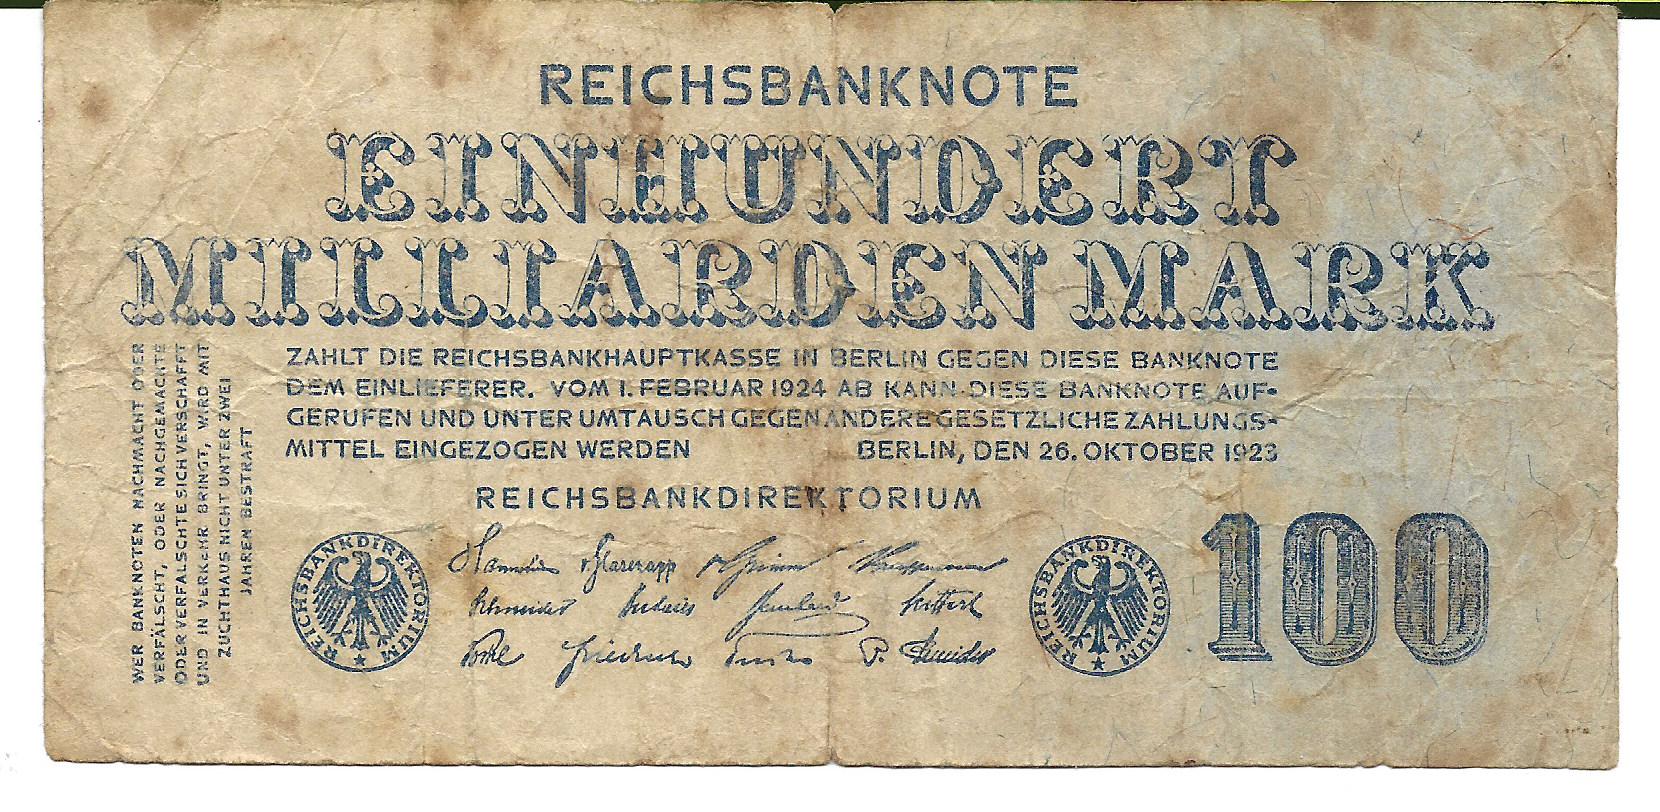 REICHSBANKNOTE
EINHUNDERT
MILLIARDEN MARK
ZAHLT DIE REICHSBANKHAUPTKASSE IN BERLIN GEGEN DIESE BANKNOTE
DEM EINLIEFERER. VOM 1. FEBRUAR 1924 AB KANN DIESE BANKNOTE AUF-
GERUFEN UND UNTER UMTAUSCH GEGEN ANDERE GESETZLICHE ZAHLUNGS-
MITTEL EINGEZOGEN WERDEN BERLIN, DEN 26. OKTOBER 1923
REICHSBANKDIREKTORIUM
WER BANKNOTEN NACHMACHT ODER
VERFÄLSCHT, ODER NACHGEMACHTE
ODER VERFÄLSCHTE SICH VERSCHAFFT
UND IN VERKEHR BRINGT, WIRD MIT
ZUCHTHAUS NICHT UNTER ZWEI
JAHREN BESTRAFT
REICHSBANKDIREKTORIUM
v. Glasenapp v. Grimm Kauffmann
Schneider
P. Schneider
REICHSBANKDIREKTORIUM
100